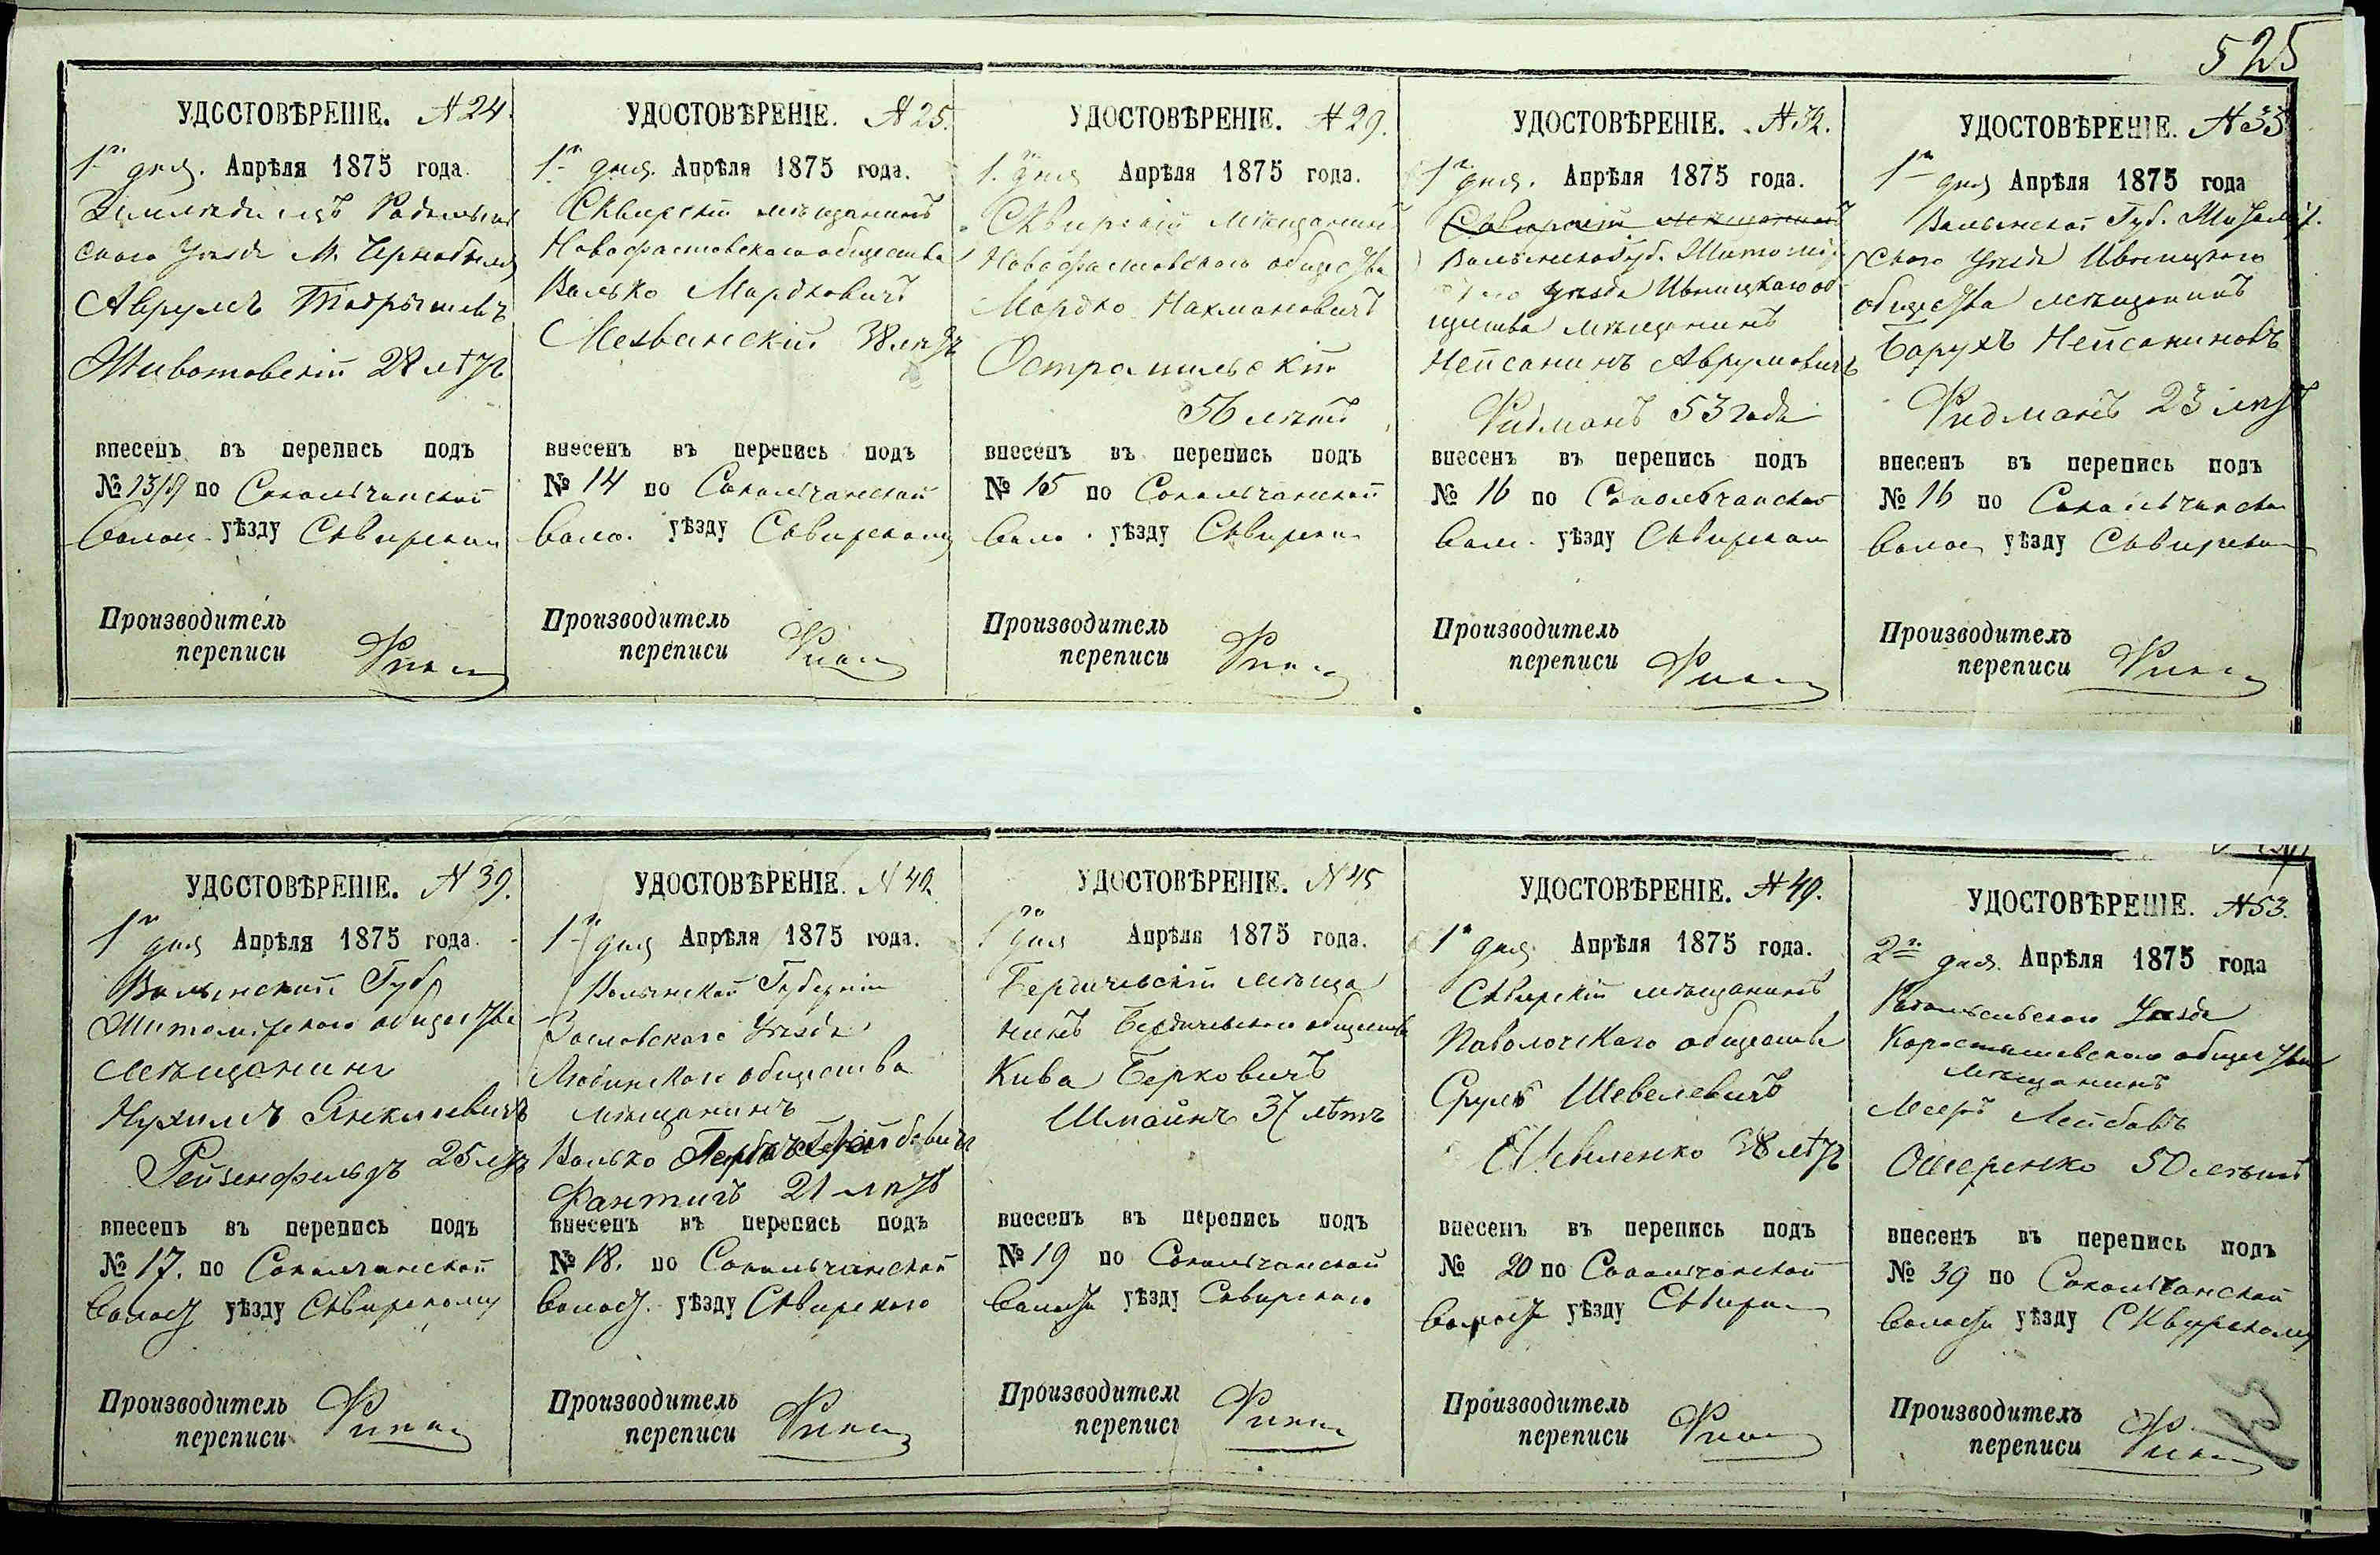 525
УДОСТОВѢРЕНІЕ. № 24.
1го дня. Апрѣля 1875 года.
Радомысль
ского Уѣзда М. Чернобыля
Аврумъ
Животовскій 28 лѣтъ
внесенъ въ перепись подъ
№ 13/19 по Сокольчанской
Волос. уѣзду Сквирском
Производитель
переписи
УДОСТОВѢРЕНІЕ. № 25.
1го дня. Апрѣля 1875 года.
Сквирскій мѣщанинъ
Новофастовскаго общества
Валько Мордковичъ
38 лѣтъ
внесенъ въ перепись подъ
№ 14 по Сокольчанской
Воло. уѣзду Сквирскому
Производитель
переписи
УДОСТОВѢРЕНІЕ. № 29.
1го дня Апрѣля 1875 года.
Сквирскій мѣщанинъ
Новофастовскаго общества
Мордко Нахмановичъ
Остропильскій
56 лѣтъ
внесенъ въ перепись подъ
№ 15 по Сокольчанской
Воло. уѣзду Сквирск
Производитель
переписи
УДОСТОВѢРЕНІЕ. № 32.
1го дня. Апрѣля 1875 года.
Сквирскій мѣщанинъ
Волынской Губ. Житомир
уѣзда Ивницкаго об
щества мѣщанинъ
Нейсанинъ Аврумовичъ
Фидманъ 53 года
внесенъ въ перепись подъ
№ 16 по Сокольчанской
Воло. уѣзду Сквирском
Производитель
переписи
УДОСТОВѢРЕНІЕ. № 33
1го дня Апрѣля 1875 года
Волынской Губ. Житомір.
скаго Уѣзда Ивницкого
общества мѣщанинъ
Барухъ Нейсаниновъ
Фидманъ 23 лѣтъ
внесенъ въ перепись подъ
№ 16 по Сокольчанской
Волос уѣзду Сквирском
Производитель
переписи
УДОСТОВѢРЕНІЕ. № 39.
1го дня Апрѣля 1875 года.
Волынской Губ
Житомірского общества
мѣщанинъ
Нухимъ Янкелевичъ
Рейзенфельдъ 25 лѣтъ
внесенъ въ перепись подъ
№ 17. по Сокольчанской
Волост уѣзду Сквирскому
Производитель
переписи
УДОСТОВѢРЕНІЕ. № 42.
1го дня Апрѣля 1875 года.
Волынской Губерніи
Заславского Уѣзда
общества
мѣщанинъ
Валько
21 лѣтъ
внесенъ въ перепись подъ
№ 18. по Сокольчанской
Волост. уѣзду Сквирского
Производитель
переписи
УДОСТОВѢРЕНІЕ. № 45
1го дня Апрѣля 1875 года.
Бердичевскій мѣща
нинъ Бердичевскаго общества
Кива Берковичъ
37 лѣтъ
внесенъ въ перепись подъ
№ 19 по Сокольчанской
Волости уѣзду Сквирского
Производитель
переписи
УДОСТОВѢРЕНІЕ. № 49.
1го дня Апрѣля 1875 года.
Сквирскій мѣщанинъ
Паволочскаго общества
Сруль Шевелевичъ
38 лѣтъ
внесенъ въ перепись подъ
№ 20 по Сокольчанской
Волости уѣзду Сквирск
Производитель
переписи
УДОСТОВѢРЕНІЕ. № 53.
2го дня. Апрѣля 1875 года
Радомысльскаго Уѣзда
Коростышевскаго общества
мѣщанинъ
Мееръ Лейбовъ
Ошеренко 50 лѣтъ
внесенъ въ перепись подъ
№ 39 по Сокольчанской
Волости уѣзду Сквирскому
Производитель
переписи